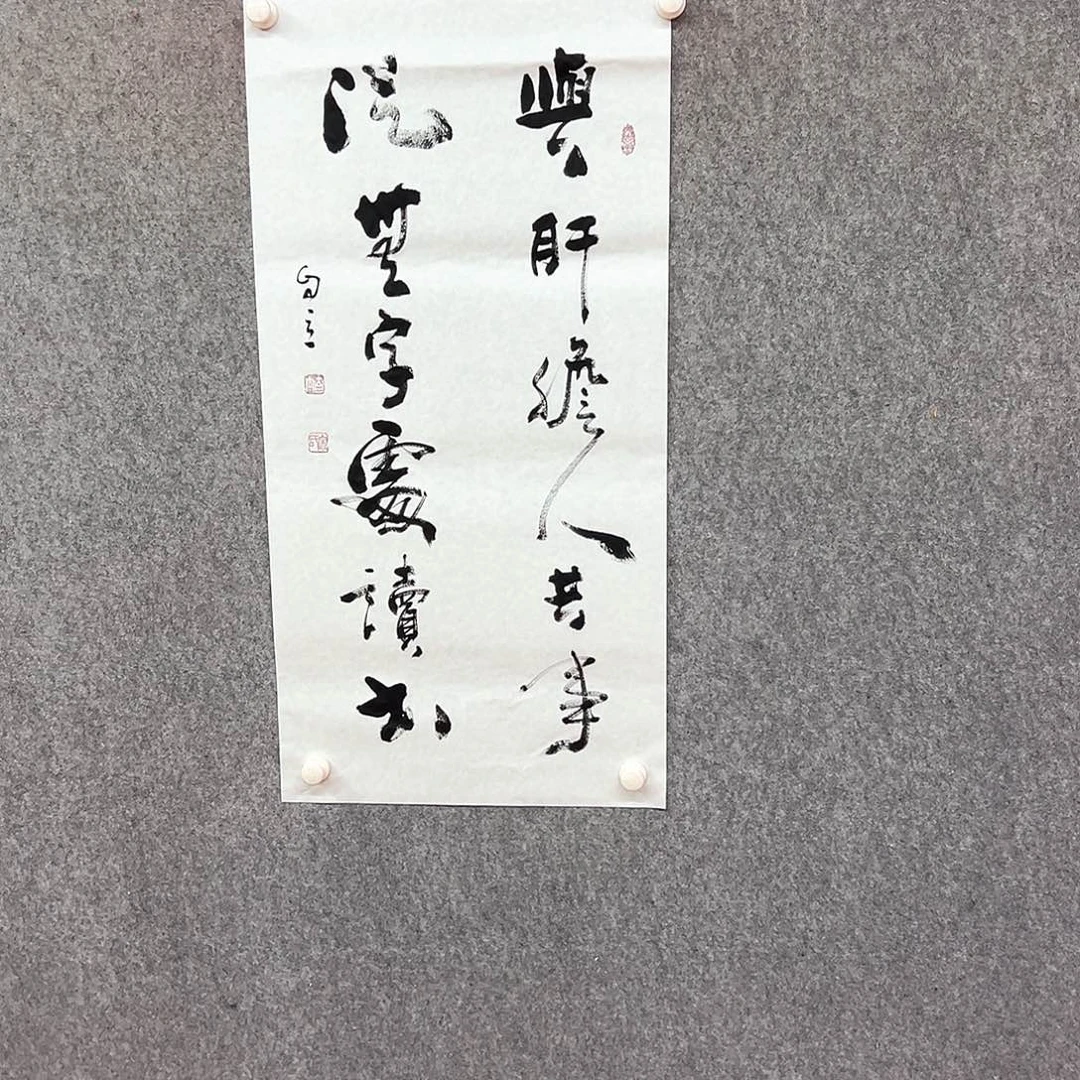 與肝膽人共事
從無字處讀書